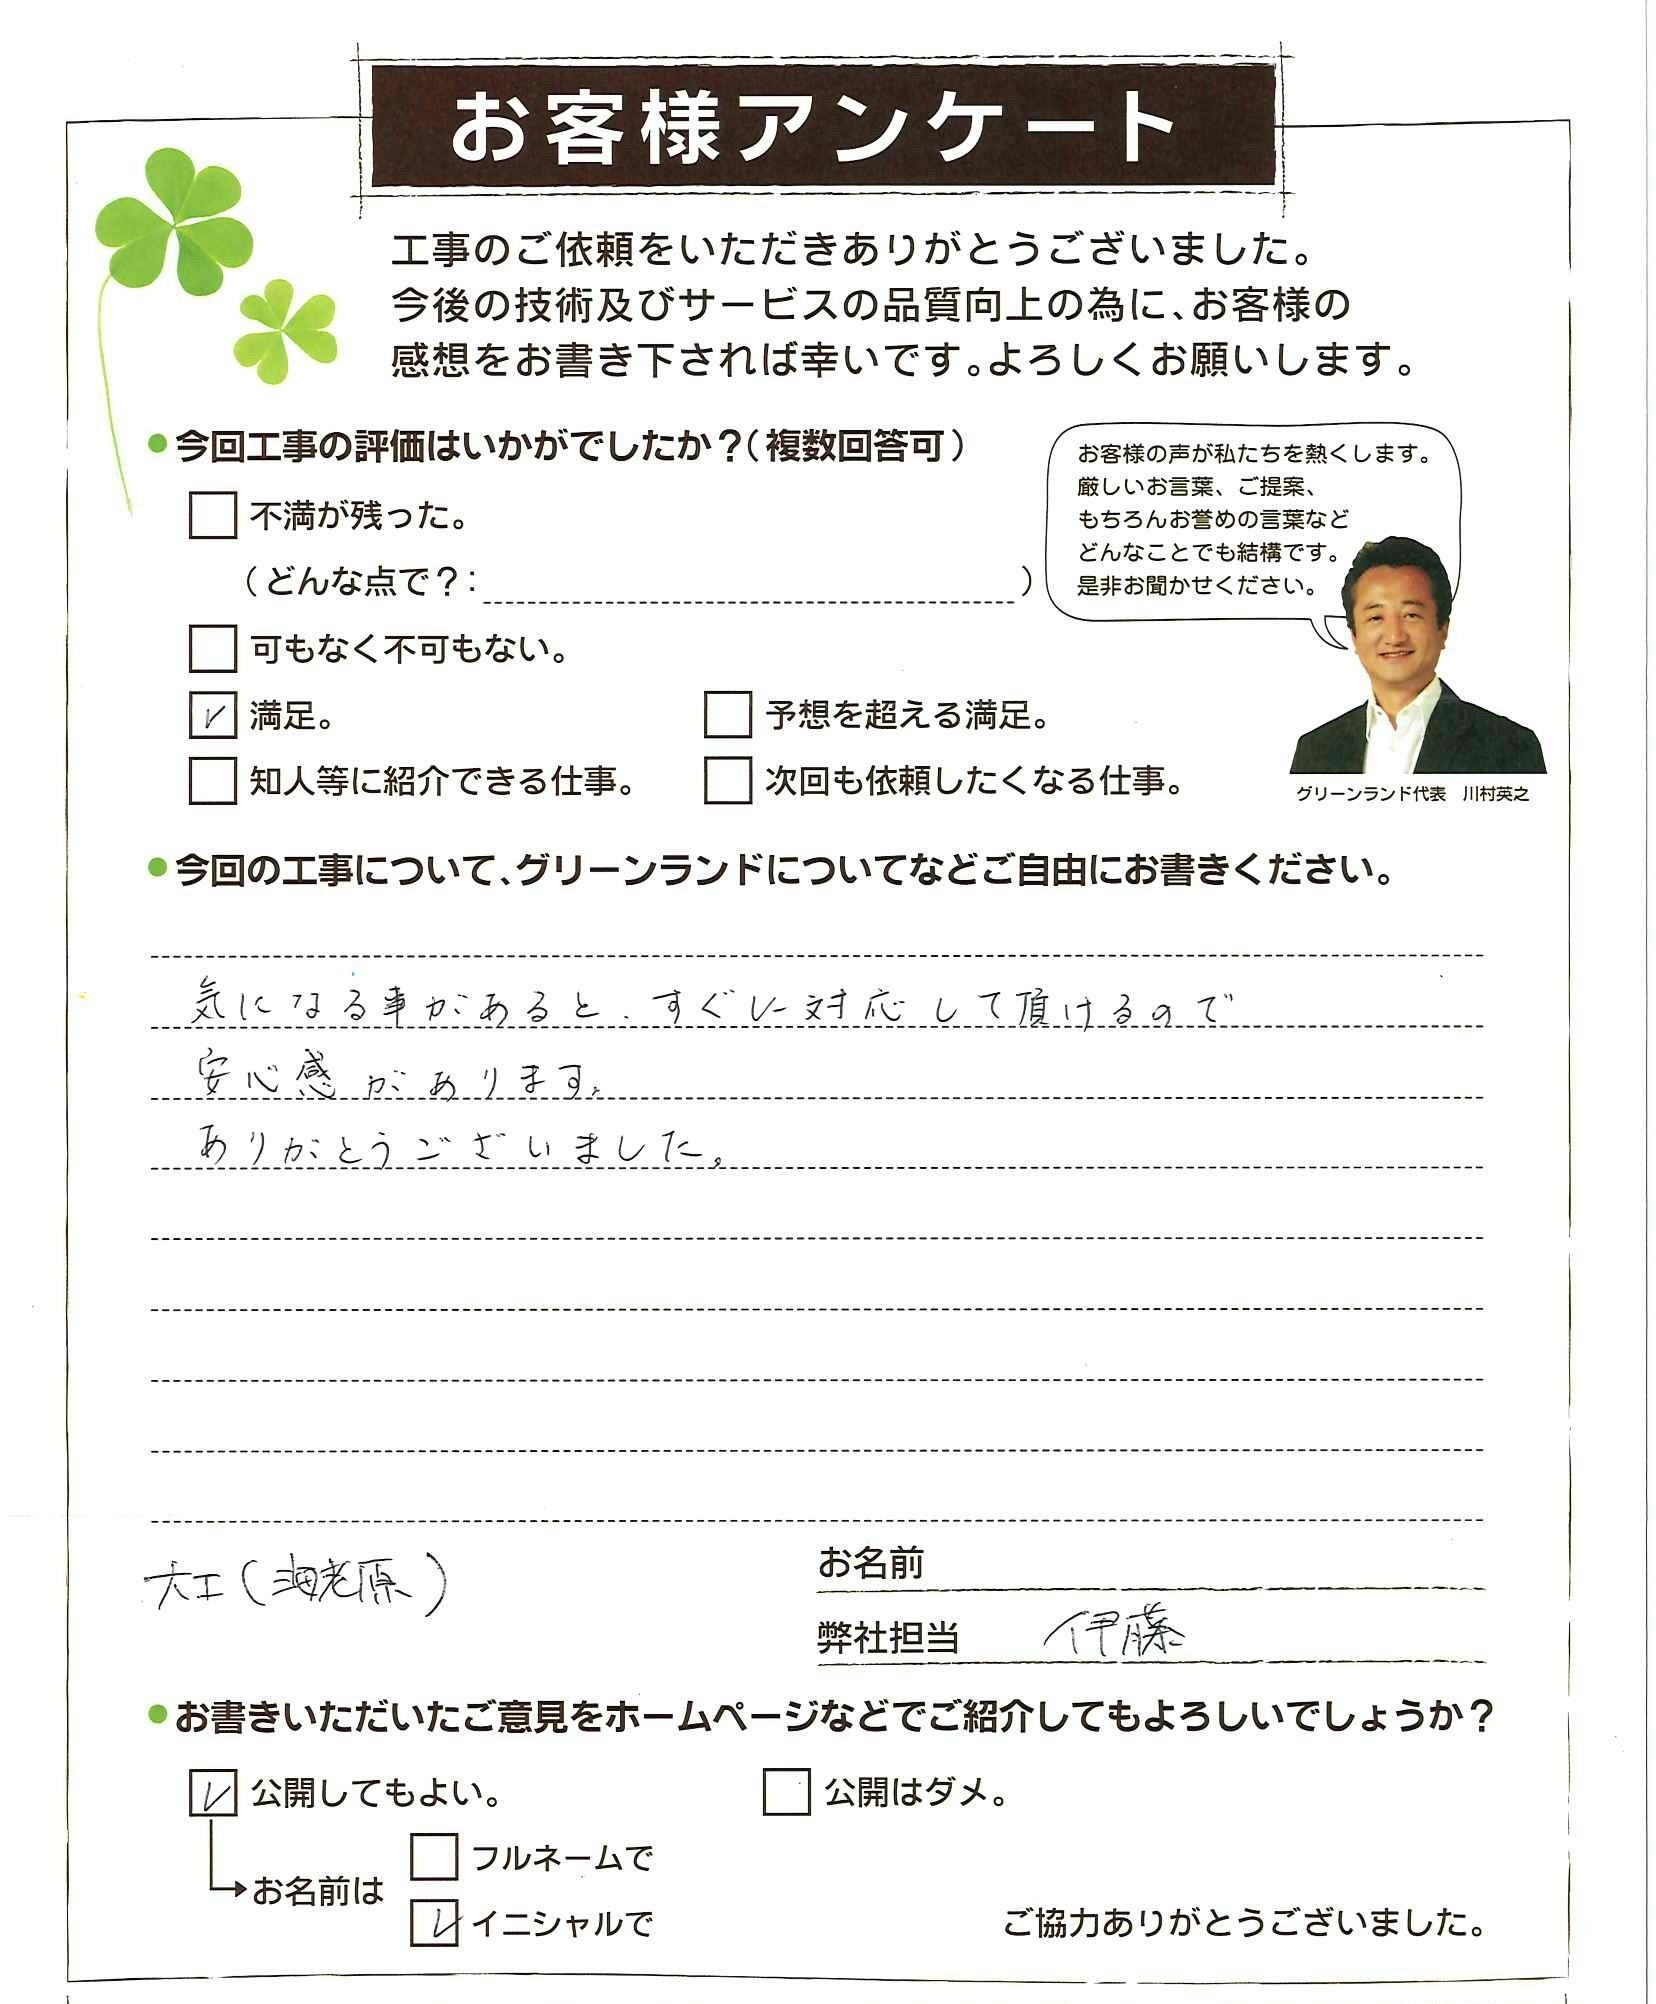 お客様アンケート
工事のご依頼をいただきありがとうございました。
今後の技術及びサービスの品質向上の為に、お客様の
感想をお書き下されば幸いです。よろしくお願いします。
●今回工事の評価はいかがでしたか？（複数回答可）
不満が残った。
（どんな点で？：　）
可もなく不可もない。
満足。
予想を超える満足。
知人等に紹介できる仕事。
次回も依頼したくなる仕事。
お客様の声が私たちを熱くします。
厳しいお言葉、ご提案、
もちろんお誉めの言葉など
どんなことでも結構です。
是非お聞かせください。
グリーンランド代表　川村英之
●今回の工事について、グリーンランドについてなどご自由にお書きください。
気になる事があると、すぐに対応して頂けるので
安心感があります。
ありがとうございました。
大工（海老原）
お名前
弊社担当　伊藤
●お書きいただいたご意見をホームページなどでご紹介してもよろしいでしょうか？
公開してもよい。
公開はダメ。
お名前は
フルネームで
イニシャルで
ご協力ありがとうございました。